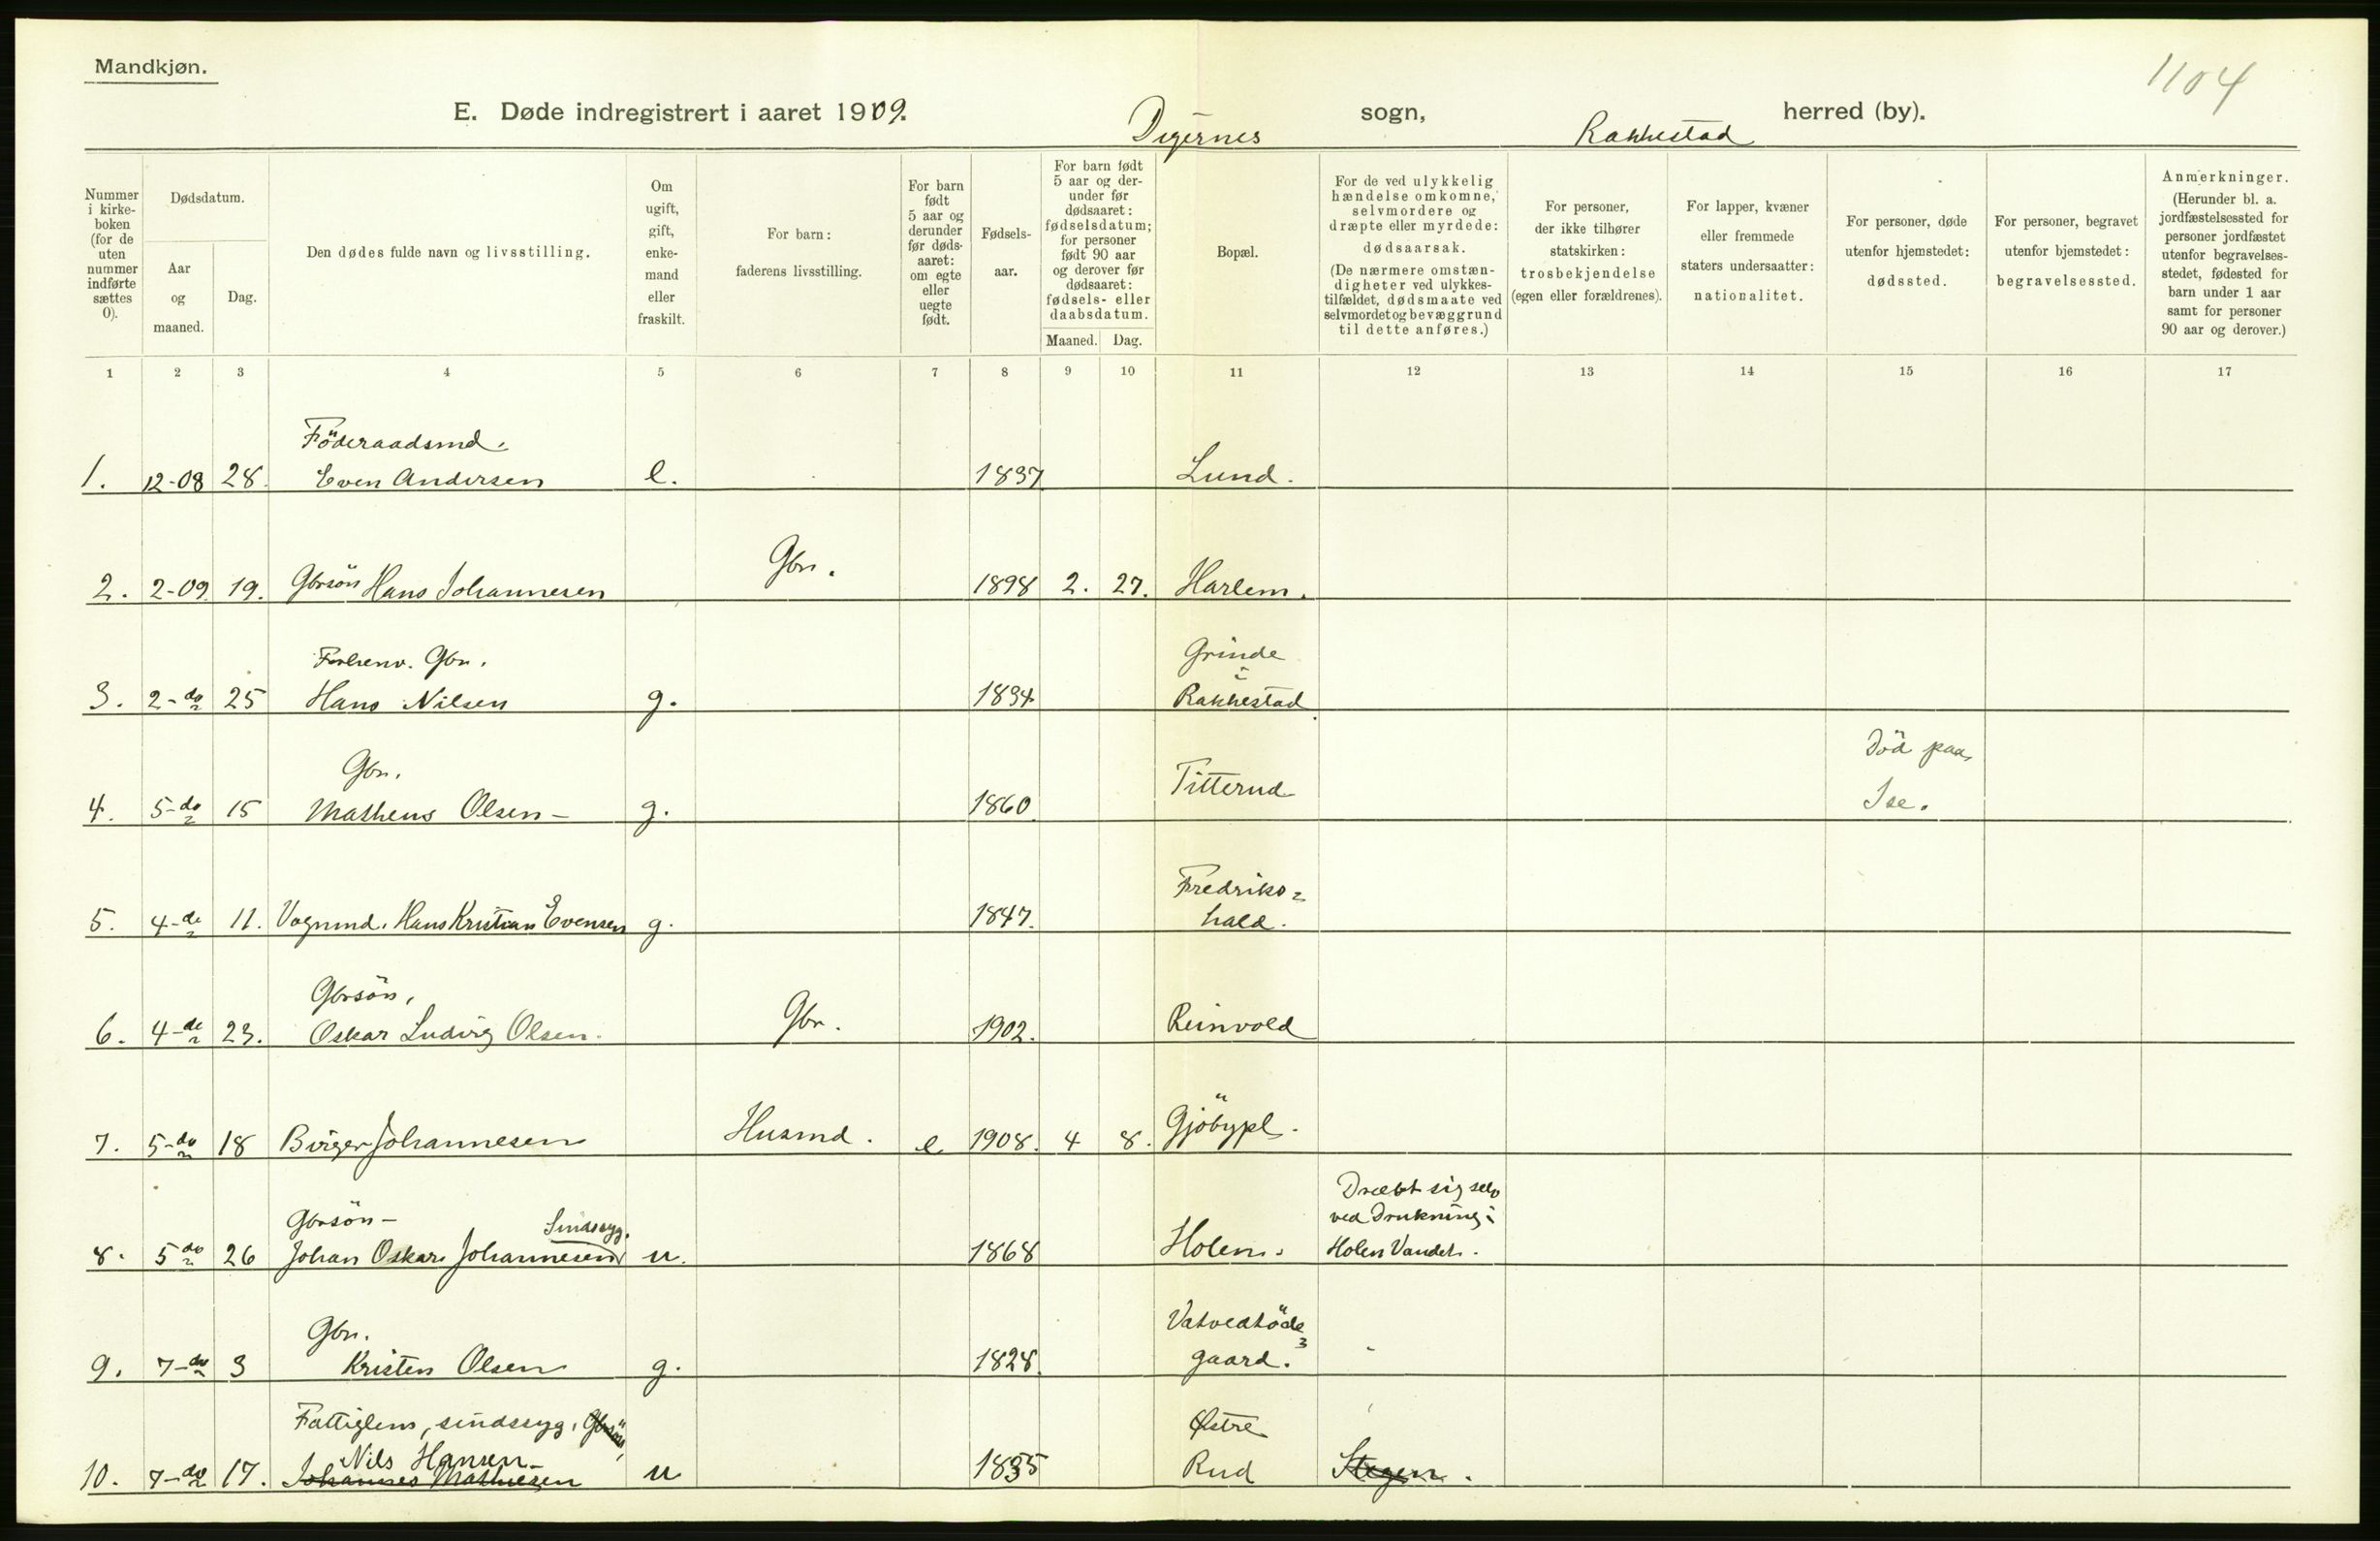 Mandkjøn.
1104
E. Døde indregistrert i aaret 1909. Degernes sogn, Rakkestad herred (by).
Nummer i kirkeboken (for de uten nummer indførte sættes 0).
Dødsdatum.
Aar og maaned.
Dag.
Den dødes fulde navn og livsstilling.
Om ugift, gift, enkemand eller fraskilt.
For barn: faderens livsstilling.
For barn født 5 aar og derunder før dødsaaret: om egte eller uegte født.
Fødselsaar.
For barn født 5 aar og derunder før dødsaaret: fødselsdatum; for personer født 90 aar og derover før dødsaaret: fødsels- eller daabsdatum.
Maaned. Dag.
Bopæl.
For de ved ulykkelig hændelse omkomne, selvmordere og dræpte eller myrdede: dødsaarsak.
(De nærmere omstændigheter ved ulykkestilfældet, dødsmaate ved selvmordet og bevæggrund til dette anføres.)
For personer, der ikke tilhører statskirken: trosbekjendelse (egen eller forældrenes).
For lapper, kvæner eller fremmede staters undersaatter: nationalitet.
For personer, døde utenfor hjemstedet: dødssted.
For personer, begravet utenfor hjemstedet: begravelsessted.
Anmerkninger.
(Herunder bl. a. jordfæstelsessted for personer jordfæstet utenfor begravelsesstedet, fødested for barn under 1 aar samt for personer 90 aar og derover.)
1 2 3 4 5 6 7 8 9 10 11 12 13 14 15 16 17
Föderaadsmd.
1. 12-08 28. Even Andersen e. 1837 Lund.
2. 2-09 19. Gbrsön Hans Johannesen Gbr. 1898 2. 27. Harlem.
Forhenv. Gbr. Grinde i
3. 2-do 25 Hans Nilsen g. 1834 Rakkestad
Gbr. Titterud Död paa
4. 5-do 15 Matheus Olsen - g. 1860 Ise.
Fredriks=
5. 4-do 11. Vognmd. Hans Kristian Evensen g. 1847. hald.
Gbrsön,
6. 4-do 23. Oskar Ludvig Olsen. Gbr. 1902. Reinvold
7. 5-do 18 Birger Johannesen Husmd. e 1908. 4 8. Gjöbypl.
Gbrsön - Sindssyg. Dræbt sig selv
ved Drukning i
8. 5 do 26 Johan Oskar Johannesen u. 1868 Holen. Holen Vandet.
Gbr. Vatvedtöde
9. 7-do 3 Kristen Olsen g. 1828. gaard.
Fattiglem, sindssyg, Gbrsön, Østre
Nils Hansen -
10. 7-do 17. Johannes Mathiesen u 1835 Rud Stegen.